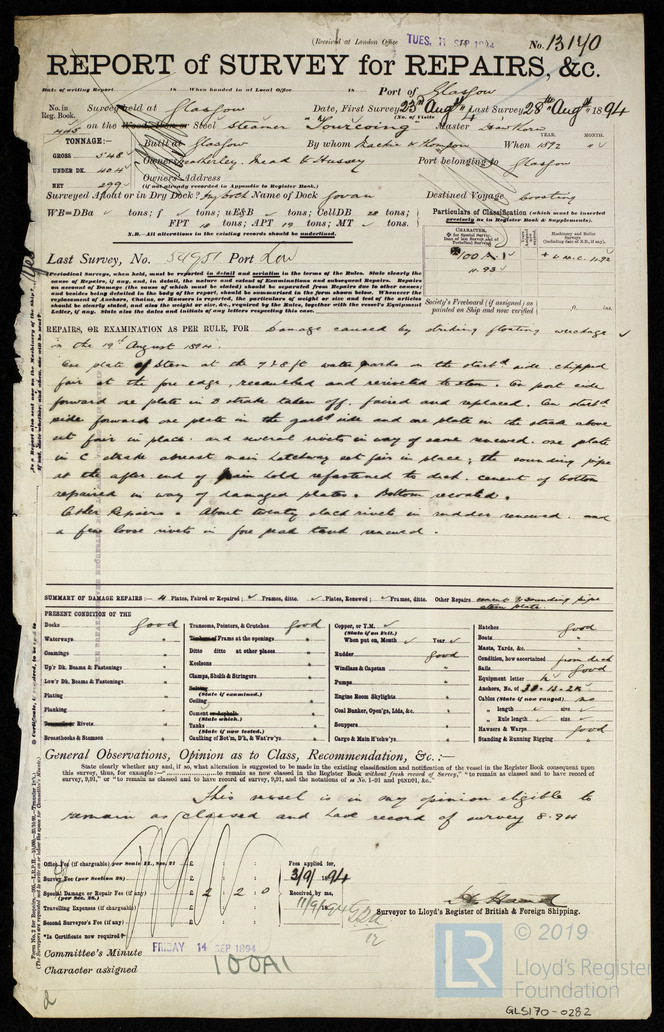 (Received at London Office TUES. 11 SEP 1894
No. 13140
REPORT of SURVEY for REPAIRS, &c.
Date of writing Report 18 When handed in at Local Office 18 Port of Glasgow
No. in Reg. Book. Survey held at Glasgow Date, First Survey 23rd Augt Last Survey 28th Augt 1894
(No. of Visits 4)
445 on the Steel Steamer "Tourcoing" Master
TONNAGE:- Built at Glasgow By whom Mackie & Thomson When 1892
YEAR. MONTH.
GROSS 548 Owners Weatherley, Mead & Hussey Port belonging to Glasgow
UNDER DK. 404 Owners' Address
NET 299 (if not already recorded in Appendix to Register Book.)
Surveyed Afloat or in Dry Dock? Dry dock Name of Dock Govan Destined Voyage Coasting
WB=DBa tons; f tons; uE&B tons; CellDB tons; FPT tons; APT 19 tons; MT tons.
N.B.-All alterations in the existing records should be underlined.
Particulars of Classification (which must be inserted precisely as in Register Book & Supplements).
Last Survey, No. 54951 Port Lon
100 A1
11.93
+ L.M.C. 11.92
Periodical Surveys, when held, must be reported in detail and seriatim in the terms of the Rules. State clearly the cause of Repairs, if any, and, in detail, the nature and extent of Examinations and subsequent Repairs. Repairs on account of Damage (the cause of which must be stated) should be separated from Repairs due to other causes; and besides being detailed in the body of the report, should be summarised in the form below. Whenever the replacement of Anchors, Chains, or Hawsers is reported, the particulars of weight or size and test of the articles should be clearly stated, and also the weights and sizes, &c., required by the Rules, together with the vessel's Equipment Letter, if any. State also the dates and initials of any letters respecting this case.
Society's Freeboard (if assigned) as painted on Ship and now verified ft. ins.
REPAIRS, OR EXAMINATION AS PER RULE, FOR Damage caused by striking floating wreckage
on the 19th August 1894.
One plate of Stem at the 7 & 8 ft water marks on the starbd side chipped
fair at the fore edge, recaulked and reriveted to stem. On port side
forward one plate in D strake taken off, faired and replaced. On starbd
side forward one plate in the garbd side and one plate in the strake above
set fair in place. and several rivets in way of same renewed. one plate
in C strake abreast main hatchway set fair in place; the sounding pipe
at the after end of main hold refastened to deck. cement of bottom
repaired in way of damaged plates. Bottom recoated.
Other Repairs. About twenty slack rivets in rudder renewed. and
a few loose rivets in fore peak tank renewed.
SUMMARY OF DAMAGE REPAIRS:- 4 Plates, Faired or Repaired; Frames, ditto. Plates, Renewed; Frames, ditto. Other Repairs cement & sounding pipe
stem plate
PRESENT CONDITION OF THE
Decks good
Waterways "
Coamings "
Up'r Dk. Beams & Fastenings "
Low'r Dk. Beams & Fastenings "
Plating "
Planking
Rivets
Breasthooks & Stemson
Transoms, Pointers, & Crutches good
Frames at the openings
Ditto ditto at other places
Keelsons
Clamps, Shelfs & Stringers
(State if examined.)
Ceiling
Cement
(State which.)
Tanks
(State if now tested.)
Caulking of Bot'm, D'k, & Wat'rw'ys
Copper, or Y.M.
(State if on Felt.)
When put on, Month Year
Rudder good
Windlass & Capstan "
Pumps "
Engine Room Skylights "
Coal Bunker, Open'gs, Lids, &c. "
Scuppers "
Cargo & Main H'tchw'ys "
Hatches good
Boats "
Masts, Yards, &c. "
Condition, how ascertained from deck
Sails good
Equipment letter h
Anchors, No. of
Cables (State if now ranged) no
" length size
" Rule length size
Hawsers & Warps good
Standing & Running Rigging "
General Observations, Opinion as to Class, Recommendation, &c.:-
State clearly whether any and, if so, what alteration is suggested to be made in the existing classification and notification of the vessel in the Register Book consequent upon
this survey, thus, for example:-"............to remain as now classed in the Register Book without fresh record of Survey," "to remain as classed and to have record of
survey, 9,91," or "to remain as classed and to have record of survey, 9,91, and the notations of ss No. 1-91 and ptND91, &c."
This vessel is in my opinion eligible to
remain as classed and have record of survey 8.94
Office Fee (if chargeable) per Scale II., Sec. 21 £ : :
Survey Fee (per Section 28) £ : :
Special Damage or Repair Fee (if any) (per Sec. 28.) £ 2 : 2 : 0
Travelling Expenses (if chargeable) £ : :
Second Surveyor's Fee (if any) £ : :
*Is Certificate now required?
Fees applied for,
3/9/1894
Received by me,
11/9/1894
Surveyor to Lloyd's Register of British & Foreign Shipping.
Committee's Minute FRIDAY 14 SEP 1894
Character assigned 100A1
© 2019
LR
Lloyd's Register
Foundation
GLS170-0282